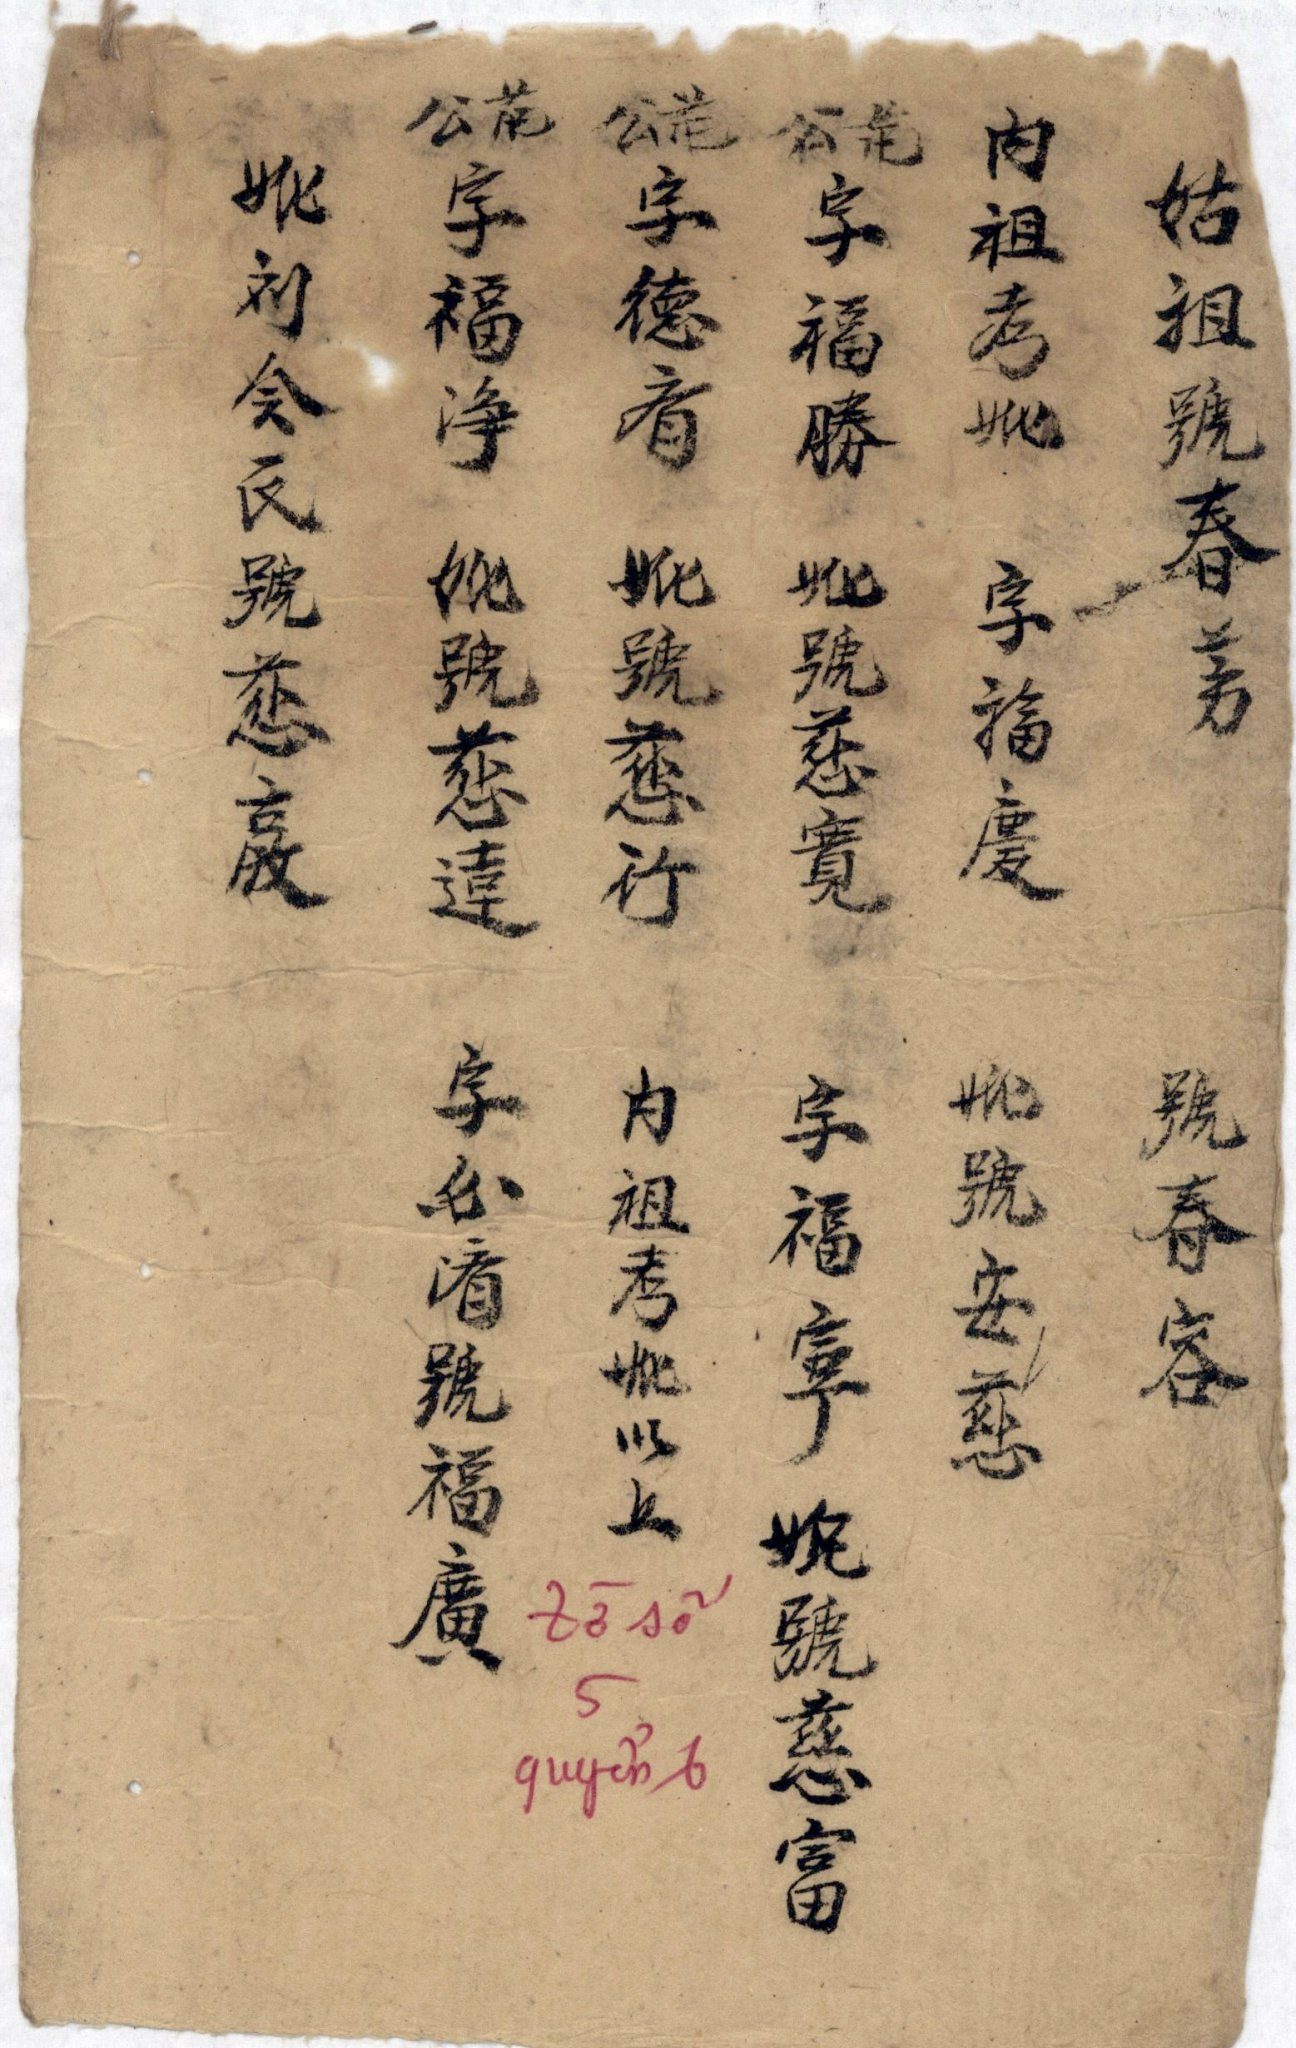 姑祖號春芳 號春容
內祖考妣 字福慶 妣號安慈
公 字福勝 妣號慈寬 字福寧 妣號慈富
公 字德看 妣號慈行 內祖考妣以上
公 字福淨 妣號慈達 字必濬號福廣
妣刘令氏號慈嚴
tờ số
5
quyển 6